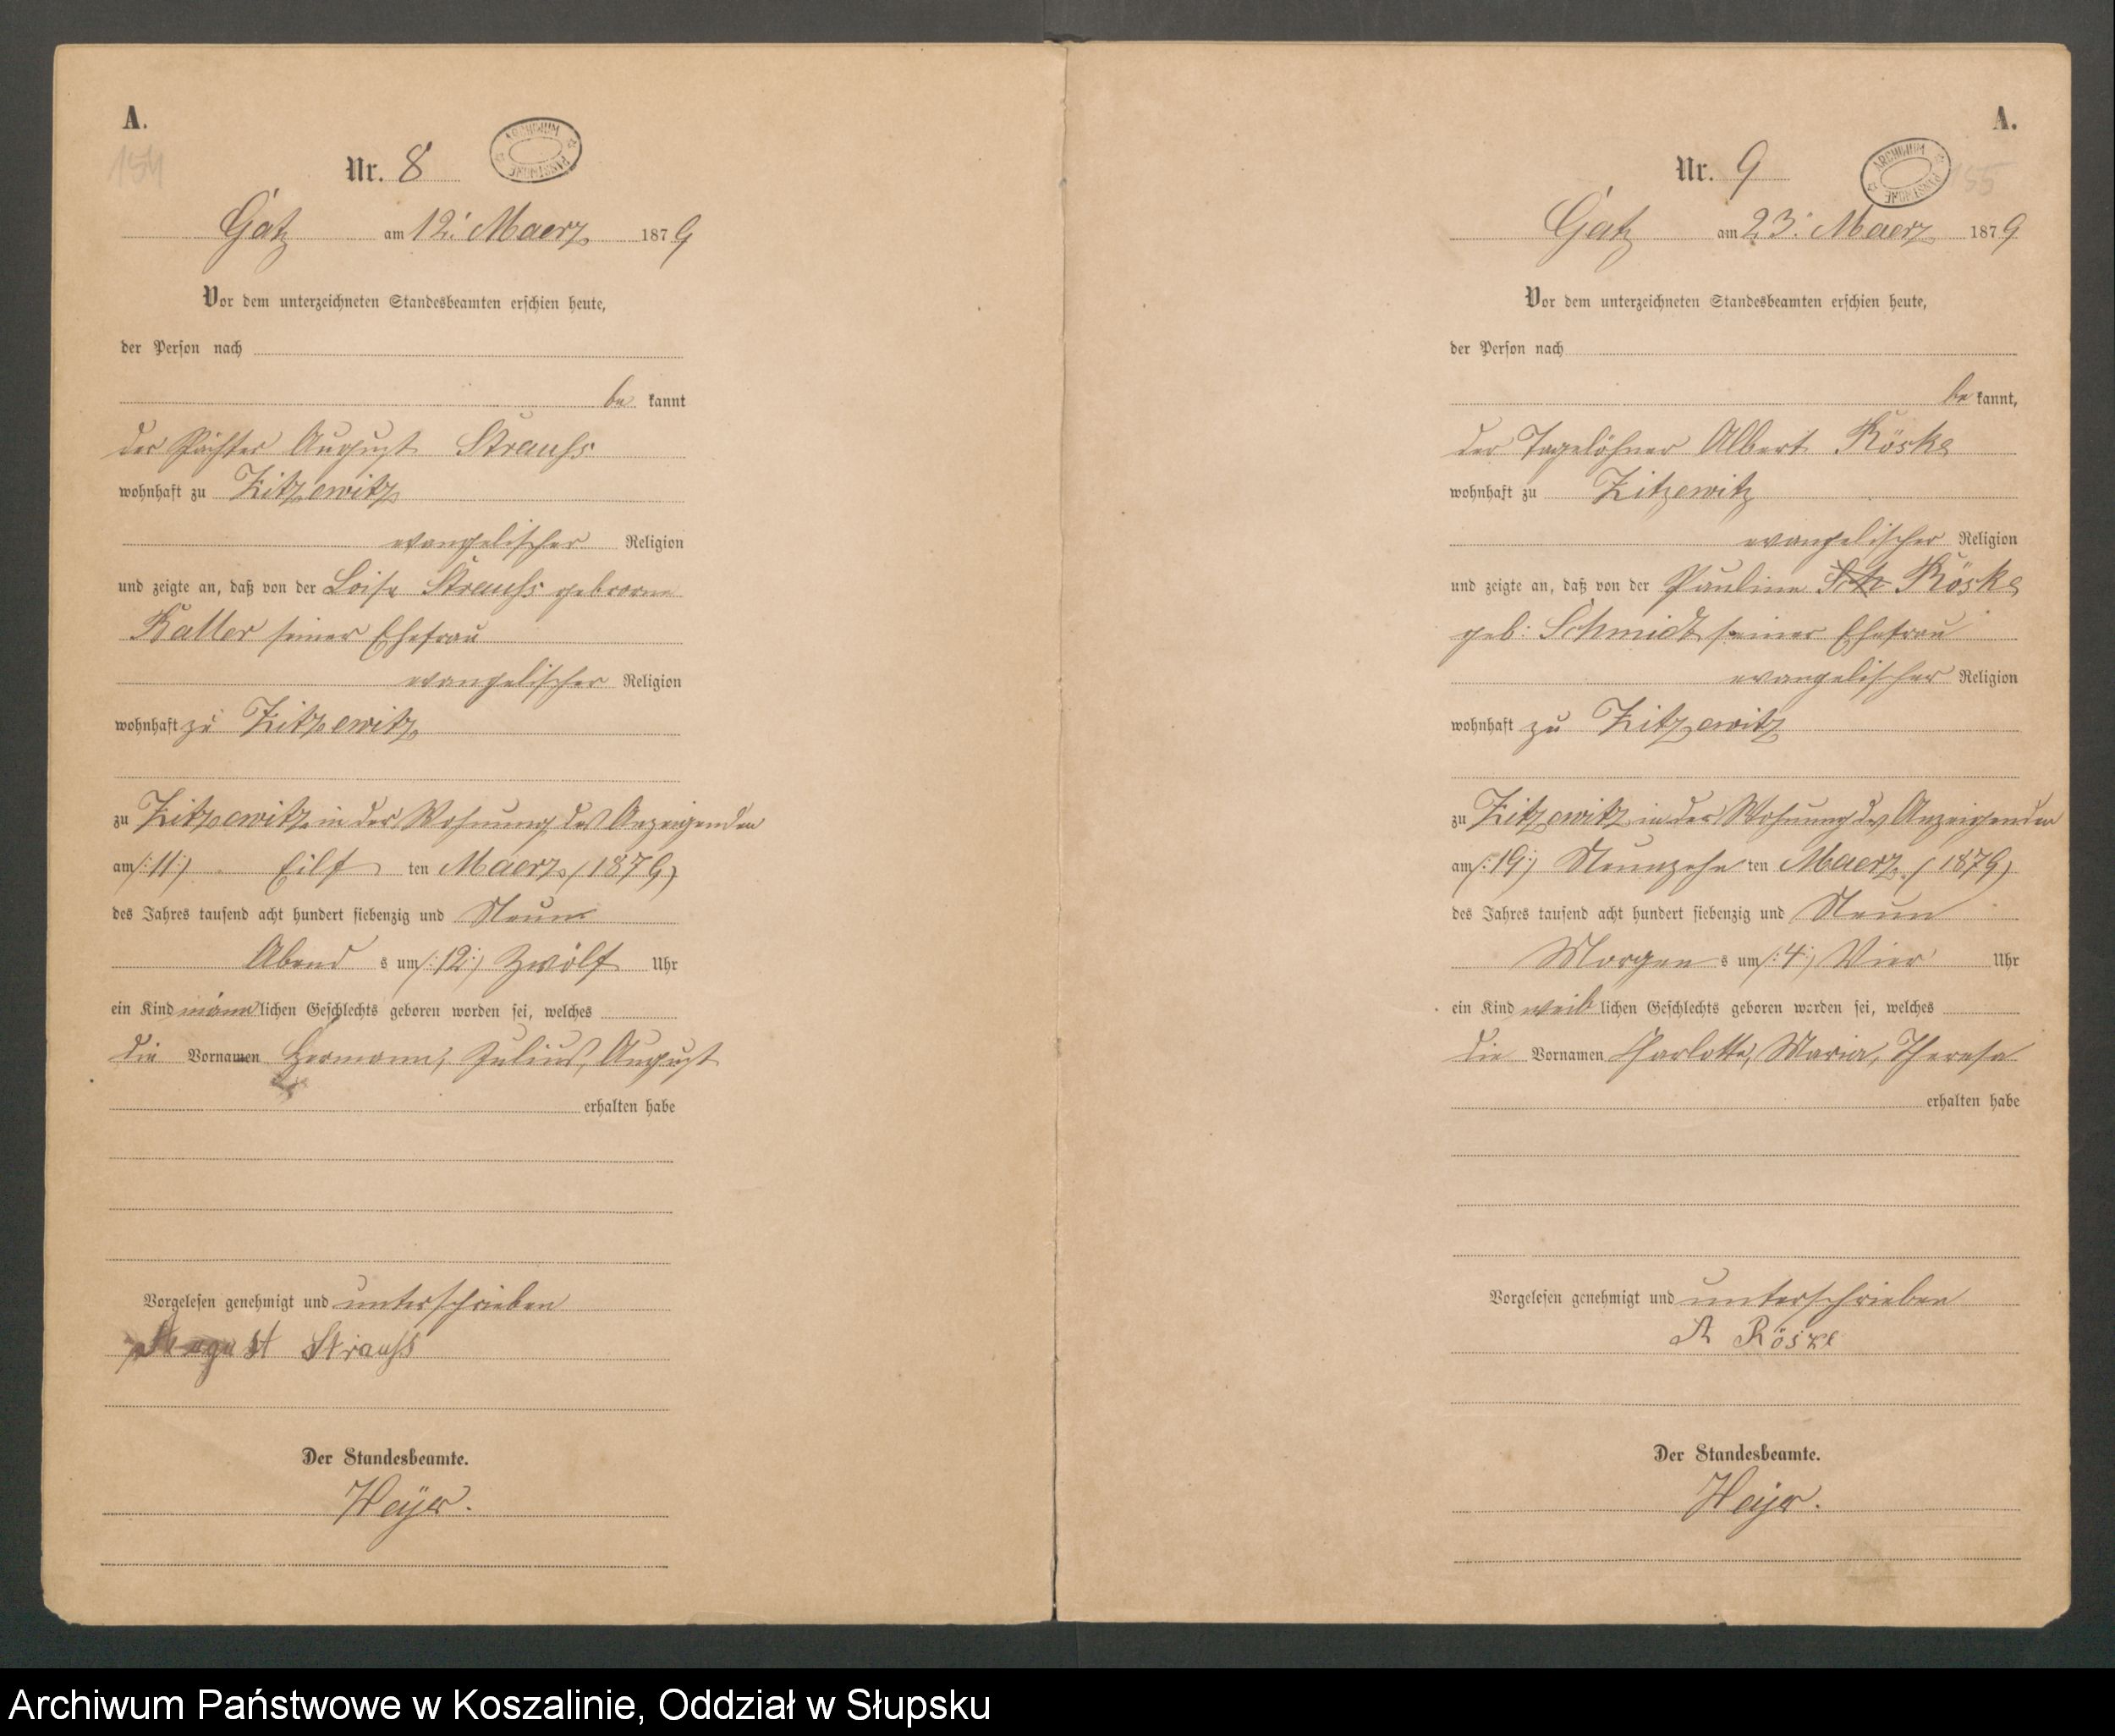 A.
154
Nr. 8
ARCHIWUM PAŃSTWOWE
Gatz am 12. Maerz 1879
Vor dem unterzeichneten Standesbeamten erschien heute,
der Person nach
be kannt
der Pächter August Strauss
wohnhaft zu Zitzewitz
evangelischer Religion
und zeigte an, daß von der Loise Strauss geborene
Katter seiner Ehefrau
evangelischer Religion
wohnhaft zu Zitzewitz
zu Zitzewitz in der Wohnung des Anzeigenden
am /:11:/ Eilf ten Maerz (1879)
des Jahres tausend acht hundert siebenzig und Neun
Abend s um /:12:/ Zwölf Uhr
ein Kind männ lichen Geschlechts geboren worden sei, welches
die Vornamen Hermann, Julius, August
erhalten habe
Vorgelesen genehmigt und unterschrieben
August Strauss
Der Standesbeamte.
A.
155
Nr. 9
ARCHIWUM PAŃSTWOWE
Gatz am 23. Maerz 1879
Vor dem unterzeichneten Standesbeamten erschien heute,
der Person nach
be kannt,
der Tagelöhner Albert Röske
wohnhaft zu Zitzewitz
evangelischer Religion
und zeigte an, daß von der Pauline Sch Röske
geb: Schmidt seiner Ehefrau
evangelischer Religion
wohnhaft zu Zitzewitz
zu Zitzewitz in der Wohnung des Anzeigenden
am /:19:/ Neunzehn ten Maerz (1879)
des Jahres tausend acht hundert siebenzig und Neun
Morgen s um /:4:/ Vier Uhr
ein Kind weib lichen Geschlechts geboren worden sei, welches
die Vornamen Charlotte, Maria, Theresa
erhalten habe
Vorgelesen genehmigt und unterschrieben
A Röske
Der Standesbeamte.
Archiwum Państwowe w Koszalinie, Oddział w Słupsku